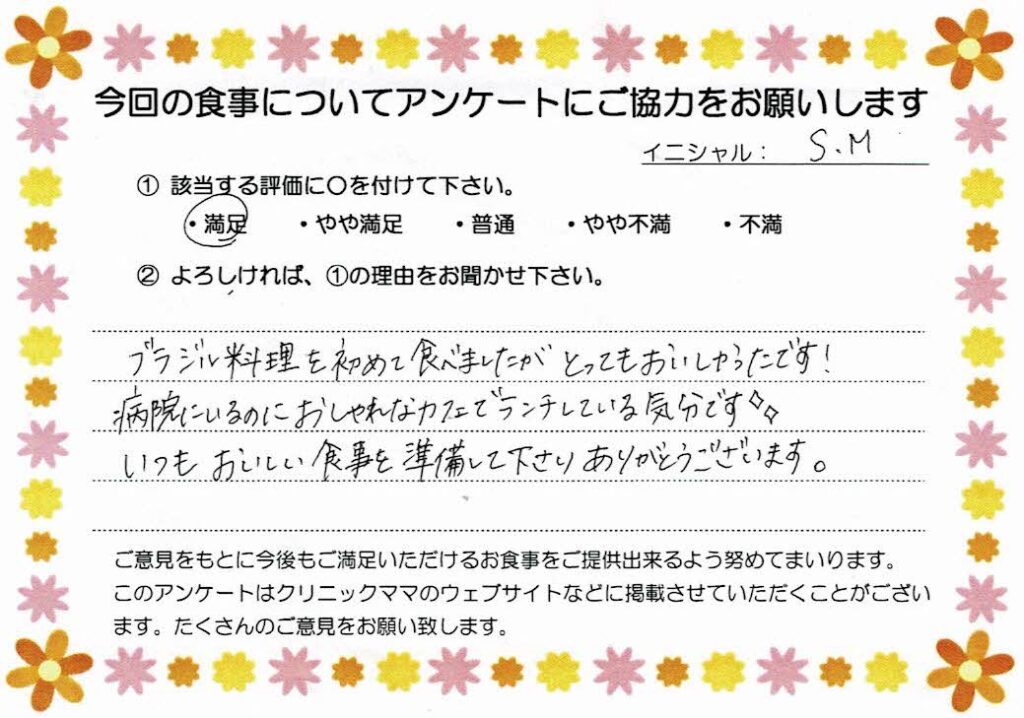 今回の食事についてアンケートにご協力をお願いします
イニシャル： S.M
① 該当する評価に〇を付けて下さい。
・満足 ・やや満足 ・普通 ・やや不満 ・不満
② よろしければ、①の理由をお聞かせ下さい。
ブラジル料理を初めて食べましたが とってもおいしかったです！
病院にいるのにおしゃれなカフェでランチしている気分です
いつも おいしい食事を準備して下さり ありがとうございます。
ご意見をもとに今後もご満足いただけるお食事をご提供出来るよう努めてまいります。
このアンケートはクリニックママのウェブサイトなどに掲載させていただくことがござい
ます。たくさんのご意見をお願い致します。